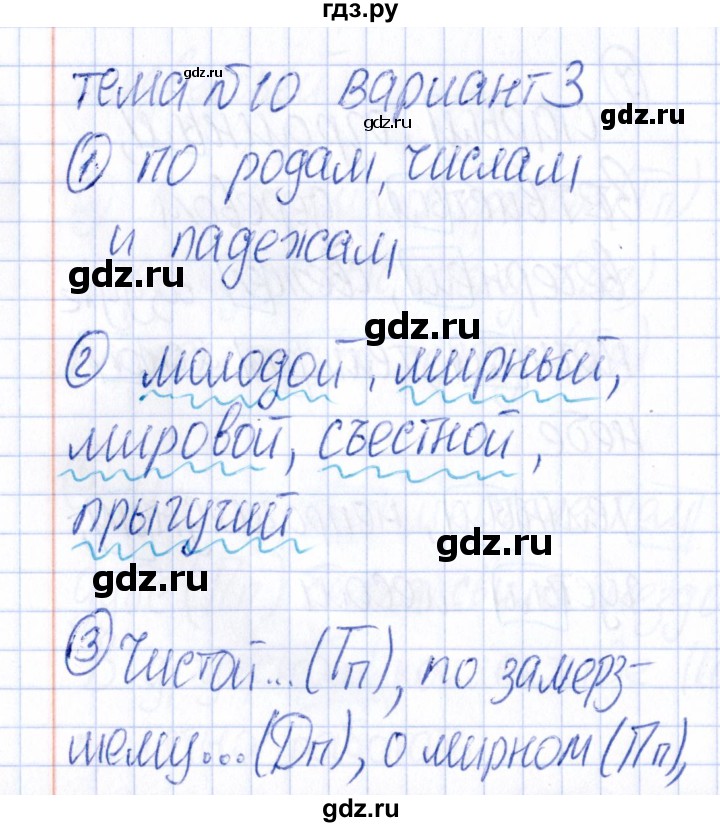 гдз.ру
gdz.ru
тема №10 вариант 3
gdz.ru
gdz.ru
① по родам, числам
и падежам
gdz.ru
gdz.ru
② молодой, мирный,
мировой, съестной,
прыгучий
gdz.ru
gdz.ru
③ Чистой... (Тп), по замерз-
шему... (Дп), о мирном (Пп),
gdz.ru